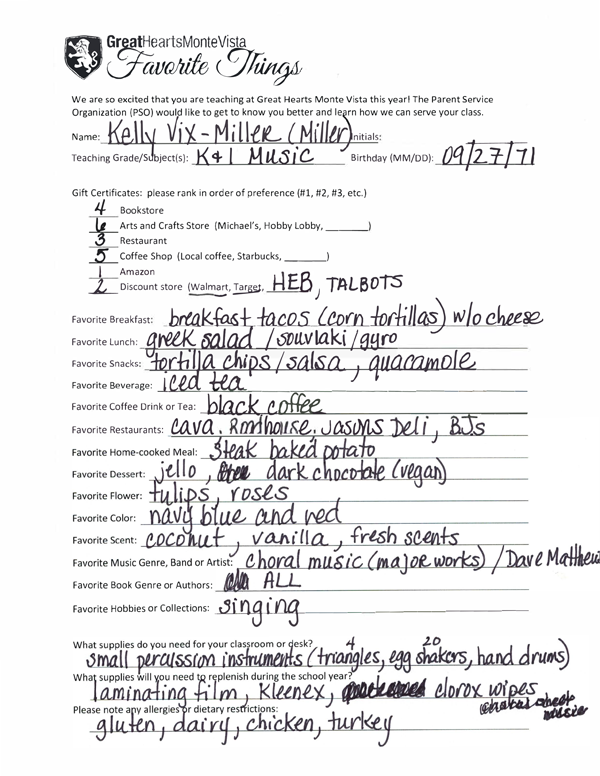 GreatHeartsMonteVista
Favorite Things
We are so excited that you are teaching at Great Hearts Monte Vista this year! The Parent Service
Organization (PSO) would like to get to know you better and learn how we can serve your class.
Name: Kelly Vix-Miller (Miller) Initials:
Teaching Grade/Subject(s): K & 1 Music Birthday (MM/DD): 09/27/71
Gift Certificates: please rank in order of preference (#1, #2, #3, etc.)
4 Bookstore
6 Arts and Crafts Store (Michael's, Hobby Lobby, ________)
3 Restaurant
5 Coffee Shop (Local coffee, Starbucks, ________)
1 Amazon
2 Discount store (Walmart, Target, HEB, TALBOTS
Favorite Breakfast: breakfast tacos (corn tortillas) w/o cheese
Favorite Lunch: greek salad /souvlaki/gyro
Favorite Snacks: tortilla chips/salsa, guacamole
Favorite Beverage: iced tea
Favorite Coffee Drink or Tea: black coffee
Favorite Restaurants: cava, Jasons Deli, BJs
Favorite Home-cooked Meal: Steak baked potato
Favorite Dessert: jello, dark chocolate (vegan)
Favorite Flower: tulips, roses
Favorite Color: navy blue and red
Favorite Scent: coconut, vanilla, fresh scents
Favorite Music Genre, Band or Artist: choral music (major works) / Dave Matthews
Favorite Book Genre or Authors: ALL
Favorite Hobbies or Collections: singing
What supplies do you need for your classroom or desk? 4 20
small percussion instruments (triangles, egg shakers, hand drums)
What supplies will you need to replenish during the school year?
laminating film, Kleenex, clorox wipes
Please note any allergies or dietary restrictions:
sheet music
gluten, dairy, chicken, turkey